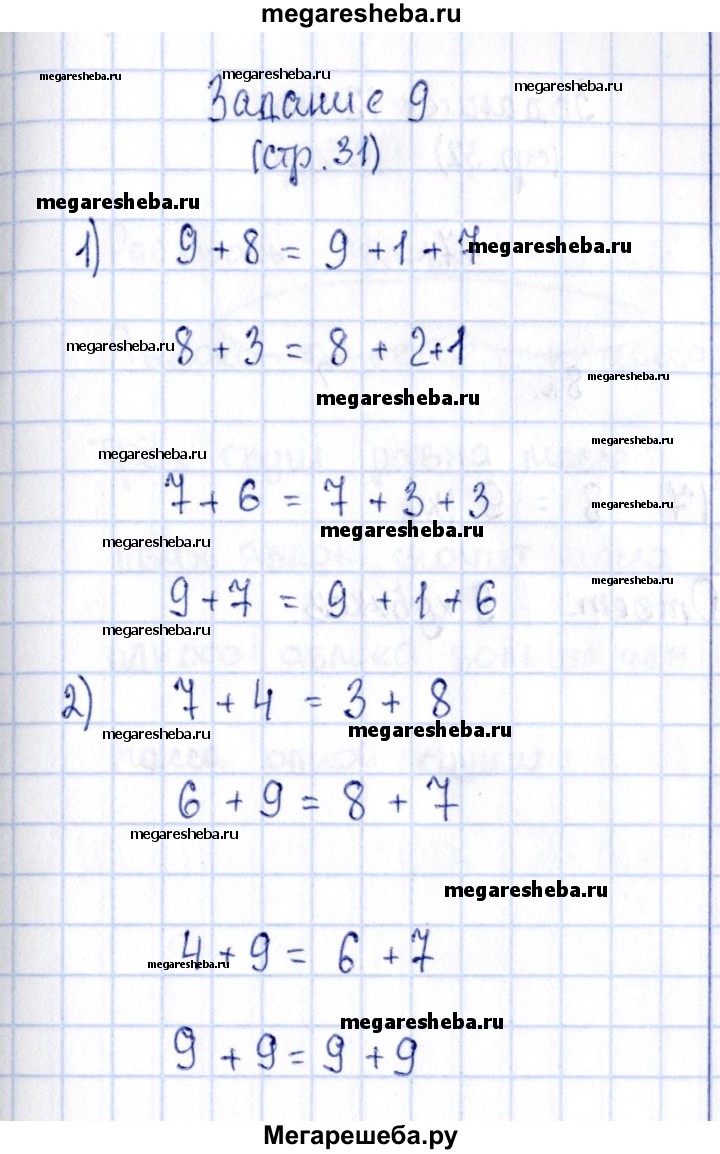 megaresheba.ru
megaresheba.ru megaresheba.ru megaresheba.ru
Задание 9
(стр. 31)
megaresheba.ru
1) 9 + 8 = 9 + 1 + 7
megaresheba.ru
megaresheba.ru
8 + 3 = 8 + 2 + 1
megaresheba.ru
megaresheba.ru
megaresheba.ru
megaresheba.ru
7 + 6 = 7 + 3 + 3
megaresheba.ru
megaresheba.ru
megaresheba.ru
megaresheba.ru
9 + 7 = 9 + 1 + 6
megaresheba.ru
2) 7 + 4 = 3 + 8
megaresheba.ru
megaresheba.ru
6 + 9 = 8 + 7
megaresheba.ru
megaresheba.ru
4 + 9 = 6 + 7
megaresheba.ru
megaresheba.ru
9 + 9 = 9 + 9
Мегарешеба.ру